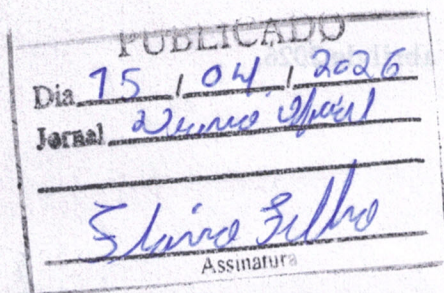 PUBLICADO
Dia 15 / 04 / 2026
Jornal Diário Oficial
Filho
Assinatura